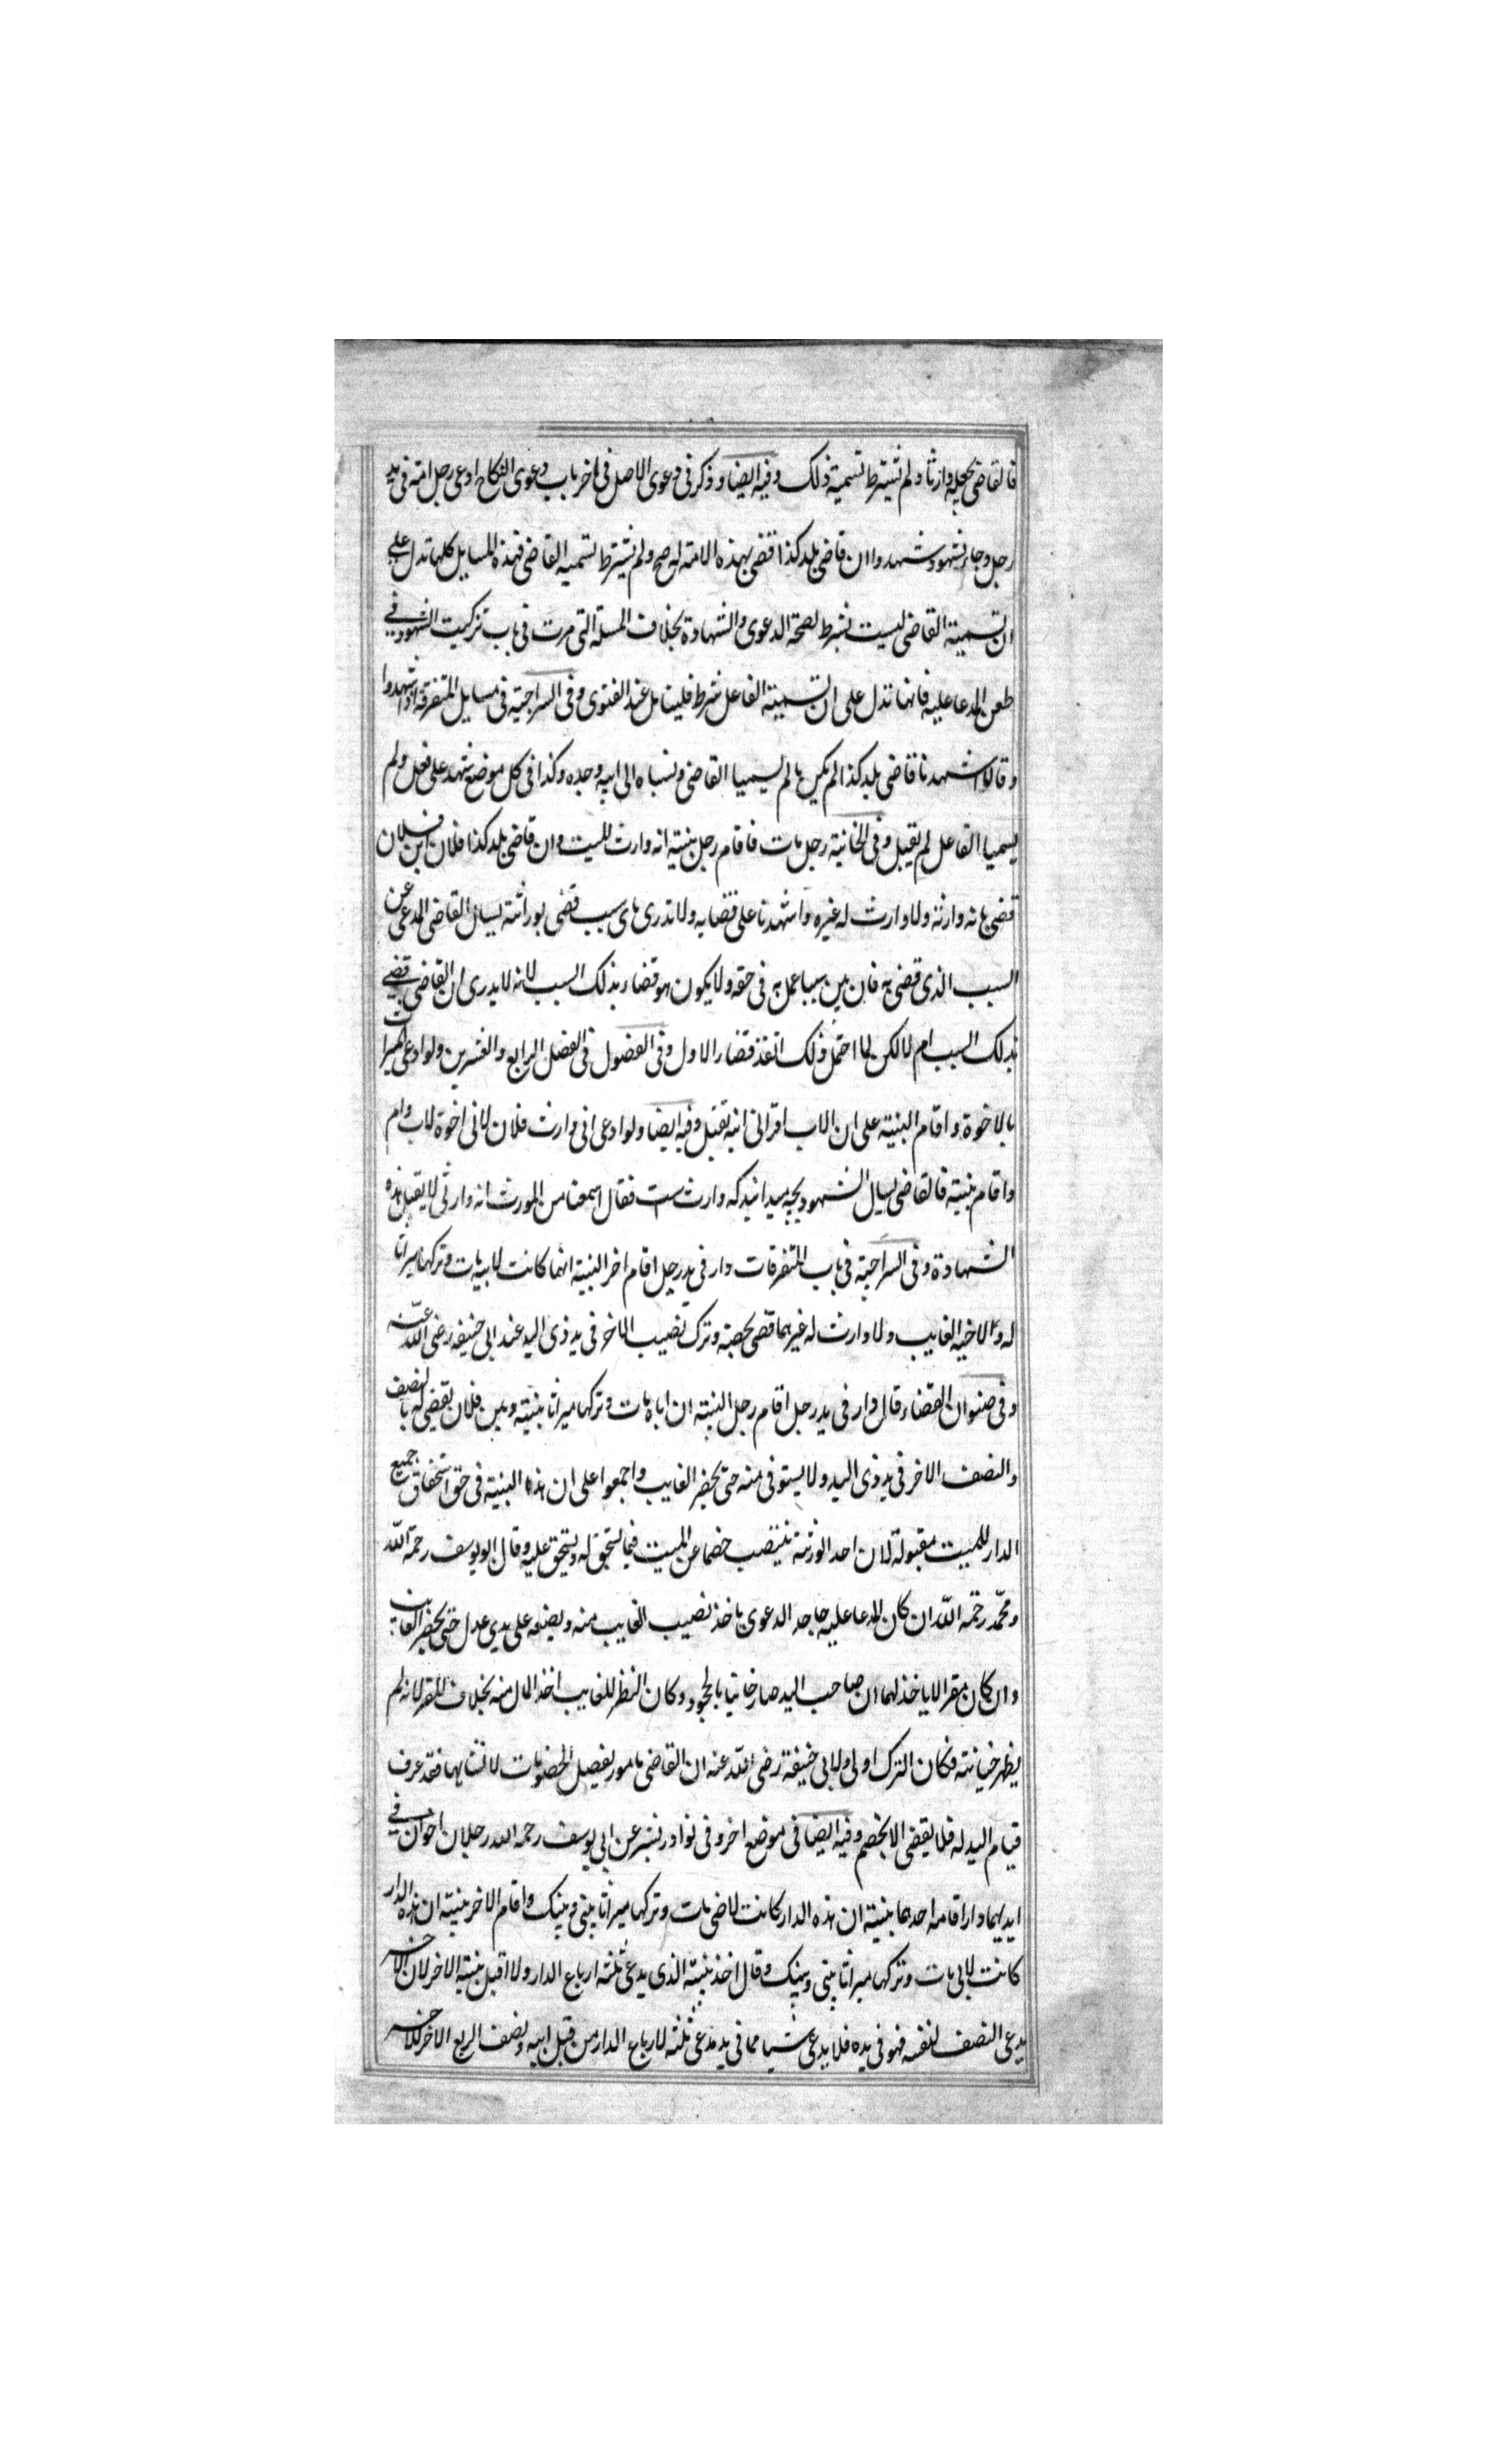 فالقاضی يجعله وارثا ولم تشترط تسمية ذلك وفيه ايضا وذكر فی دعوی الاصل فی اخر باب دعوی النكاح ادعی رجل امة فی يد
رجل وجاء بشهود وشهدوا ان قاضی بلد كذا قضی بهذه الامة له صح ولم تشترط تسمية القاضی فهذه المسايل كلها تدل علی
ان تسمية القاضی ليست بشرط لصحة الدعوی والشهادة بخلاف المسئلة التی مرت فی باب تزكيت الشهود فی
طعن المدعا عليه فانها تدل علی ان تسمية الفاعل شرط فليتامل عند الفتوی وفی السراجية فی مسايل المتفرقة اذا شهدوا
وقالا اشهدنا قاضی بلد كذا لم يكن ما لم يسميا القاضی ونسباه الی ابيه وجده وكذا فی كل موضع شهد علی فعل ولم
يسميا الفاعل لم تقبل وفی الخانية رجل مات فاقام رجل بينة انه وارث للميت وان قاضی بلد كذا فلان ابن فلان
قضی بانه وارثه ولا وارث له غيره واشهدنا علی قضايه ولا ندری بای سبب قضی بوراثته يسال القاضی المدعی عن
السبب الذی قضی به فان بين سببا عمل به فی حقه ولا يكون هو قضاء بذلك السبب لانه لا يدری ان القاضی قضی
بذلك السبب ام لا لكن لما احتمل ذلك انفذ قضاء الاول وفی الفصول فی الفصل الرابع والعشرين ولو ادعی الميراث
بالاخوة واقام البينة علی ان الاب اقر انی ابنه تقبل وفيه ايضا ولو ادعی انی وارث فلان لانی اخوه لاب وام
واقام بينة فالقاضی يسال الشهود بچه ميدانيد كه وارث ست فقال اسمعنا من المورث انه وارثی لا يقبل هذه
الشهادة وفی السراجية فی باب المتفرقات دار فی يد رجل اقام اخر البينة انها كانت لابيه مات وتركها ميراثا
له ولاخيه الغايب ولا وارث له غيرهما قضی بحصته وترك نصيب الاخر فی يد ذی اليد عند ابی حنيفه رضی الله عنه
وفی صنوان القضاء قال دار فی يد رجل اقام رجل البينة ان اباه مات وتركها ميراثا بينه وبين فلان يقضی له بالنصف
والنصف الاخر فی يد ذی اليد ولا يستوفی منه حتی يحضر الغايب واجمعوا علی ان هذه البينة فی حق استحقاق جميع
الدار للميت مقبولة لان احد الورثة ينتصب خصما عن الميت فيما يستحق له ويستحق عليه وقال ابو يوسف رحمة الله
ومحمد رحمة الله ان كان المدعا عليه جاحد الدعوی ياخذ نصيب الغايب منه ويضعه علی يدی عدل حتی يحضر الغايب
وان كان مقرا لا ياخذ لهما ان صاحب اليد صار خاينا بالجحود وكان النظر للغايب اخذ المال منه بخلاف المقر لانه لم
يظهر خيانته فكان الترك اولی ولابی حنيفة رضی الله عنه ان القاضی مامور بفصيل الخصومات لا انشايها فقد عرف
قيام اليد له فلا يقضی الا بخصم وفيه ايضا فی موضع اخر وفی نوادر بشر عن ابی يوسف رحمه الله رجلان اخوان فی
ايديهما دار اقامه احدهما بينة ان هذه الدار كانت لامی مات وتركها ميراثا بينی وبينك واقام الاخر بينة ان هذه الدار
كانت لابی مات وتركها ميراثا بينی وبينك وقال اخذ بينة الذی يدعی ثلثه ارباع الدار ولا اقبل بينة الاخر لان الاخر
يدعی النصف لنفسه فهو فی يده فلا يدعی شيا مما فی يد مدعی ثلثه لارباع الدار من قبل ابيه ونصف الربع الاخر للاخر